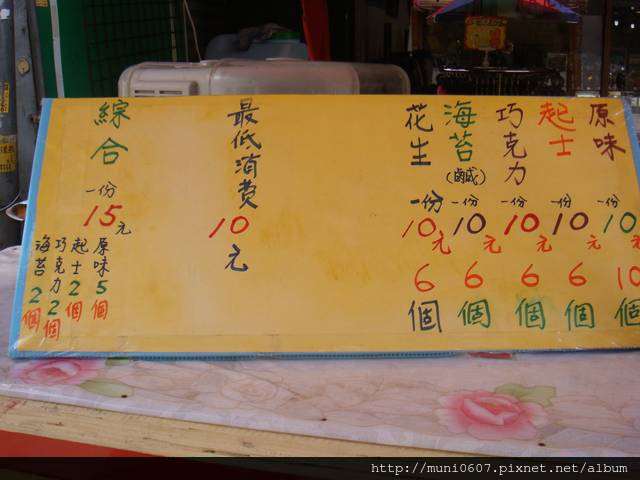 原味
一份
10元
10個
起士
一份
10元
6個
巧克力
一份
10元
6個
海苔(鹹)
一份
10元
6個
花生
一份
10元
6個
最低消費
10元
綜合
一份
15元
原味5個
起士2個
巧克力2個
海苔2個
http://muni0607.pixnet.net/album